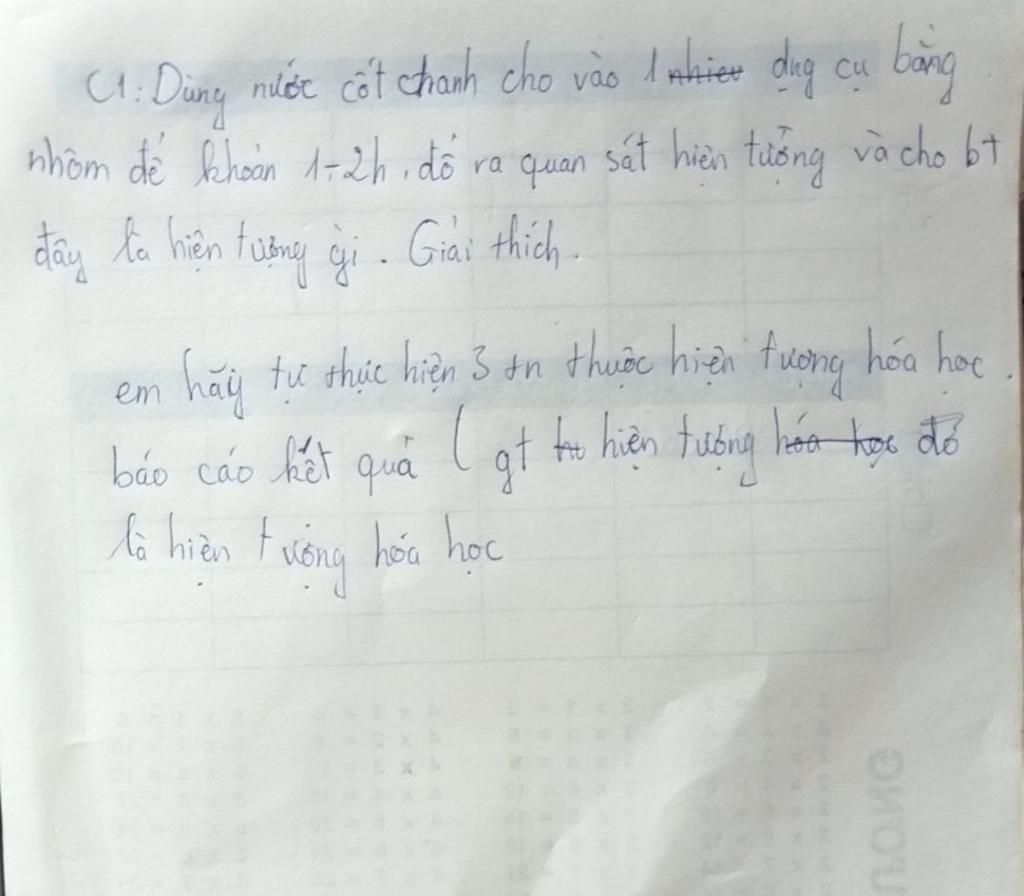 C1: Dùng nước cốt chanh cho vào 1 nhieu dụng cụ bằng
nhôm để khoản 1-2h, đổ ra quan sát hiện tượng và cho bt
đây là hiện tượng gì. Giải thích.
em hãy tự thực hiện 3 tn thuộc hiện tượng hóa học.
báo cáo kết quả ( gt hiện tượng hóa học đó
là hiện tượng hóa học